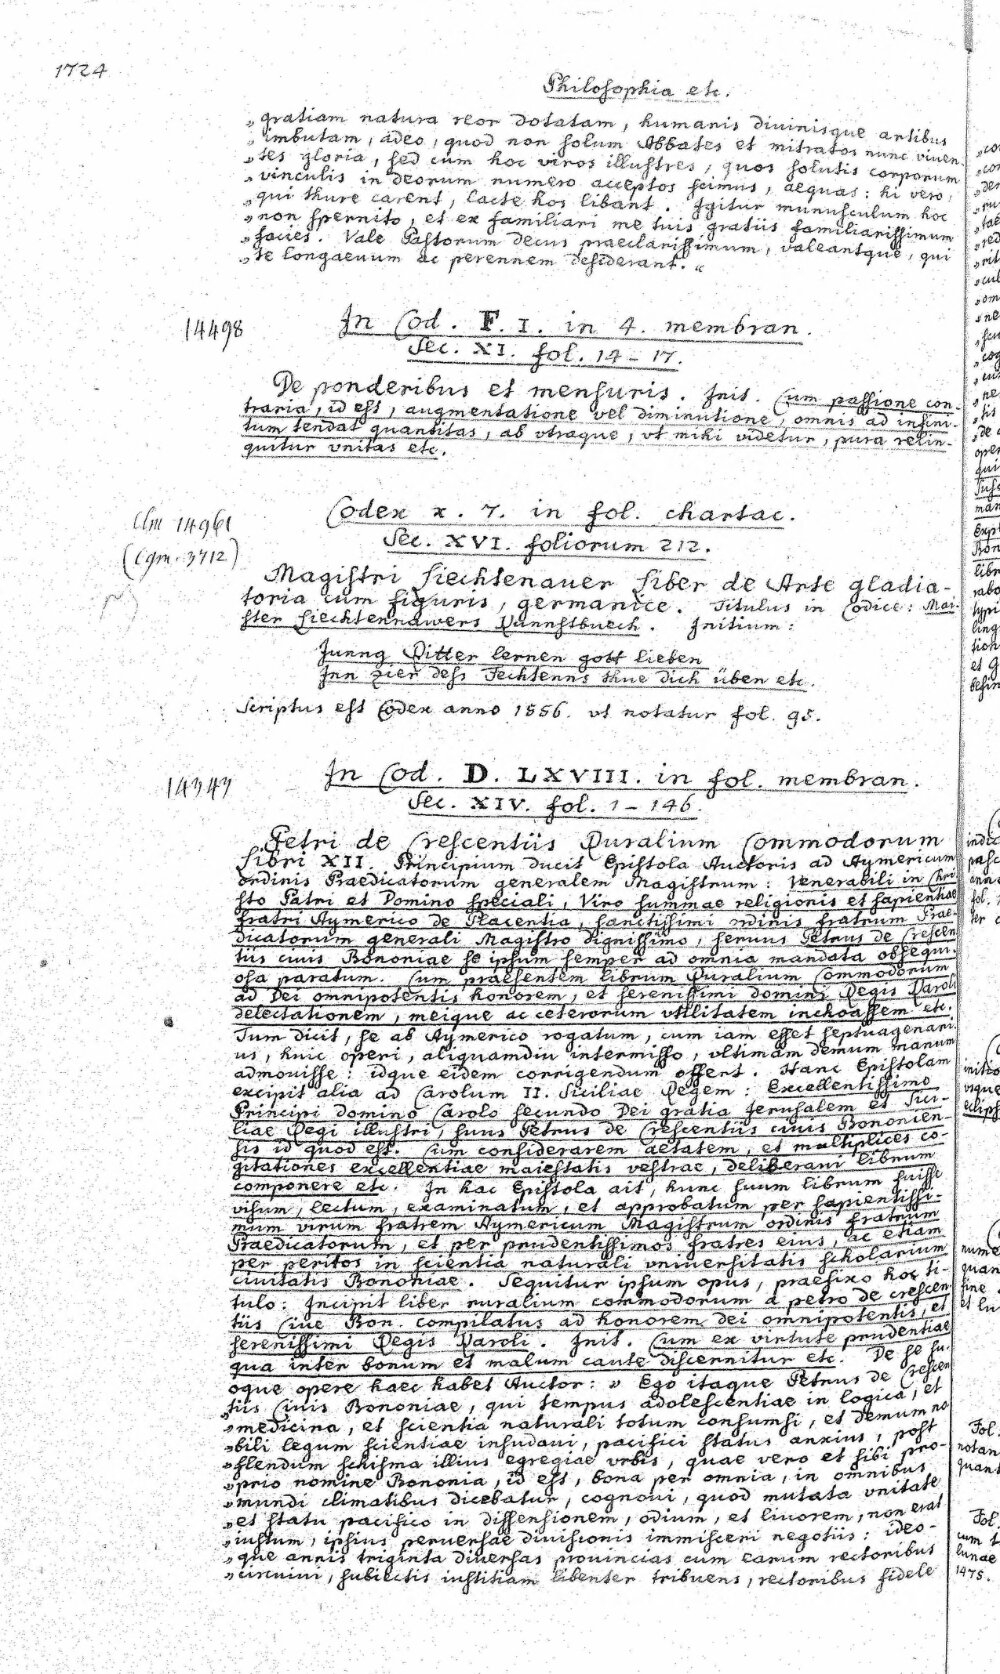 1724
Philosophia etc.
„gratiam natura reor dotatam, humanis diuinisque artibus
„imbutam, adeo, quod non solum Abbates et mitratos nunc viuen
„tes gloria, sed cum hoc viros illustres, quos solutis corporum
„vinculis in deorum numero acceptos scimus, aequas: hi vero,
„qui thure carent, lacte hos libant. Igitur munusculum hoc
„non spernito, et ex familiari me tuis gratiis familiarissimum
„facies. Vale Pastorum decus praeclarissimum, valeantque, qui
„te longaeuum ac perennem desiderant.“
14498
In Cod. F. I. in 4. membran.
Sec. XI. fol. 14-17.
De ponderibus et mensuris. Init. Cum passione con-
traria, id est, augmentatione vel diminutione, omnis ad infini-
tum tendat quantitas, ab vtraque, vt mihi videtur, pura relin-
quitur vnitas etc.
Clm 14961
(Cgm. 3712)
Codex x. 7. in fol. chartac.
Sec. XVI. foliorum 212.
Magistri Liechtenauer Liber de Arte gladia-
toria cum figuris, germanice. Titulus in Codice: Mai-
ster Liechtennawers Kunnstbuech. Initium:
Junng Ritter lernen gott lieben
Inn zier dess Fechtenns thue dich üben etc.
Scriptus est Codex anno 1556. vt notatur fol. 95.
14343
In Cod. D. LXVIII. in fol. membran.
Sec. XIV. fol. 1-146.
Petri de Crescentiis Ruralium Commodorum
Libri XII. Principium ducit Epistola Auctoris ad Aymericum
ordinis Praedicatorum generalem Magistrum: Venerabili in Chri
sto Patri et Domino speciali, Viro summae religionis et sapientiae
fratri Aymerico de Placentia, sanctissimi ordinis fratrum Prae-
dicatorum generali Magistro dignissimo, seruus Petrus de Crescen
tiis ciuis Bononiae se ipsum semper ad omnia mandata obsequi-
osa paratum. Cum praesentem librum Ruralium Commodorum
ad Dei omnipotentis honorem, et serenissimi domini Regis Karoli
delectationem, meique ac ceterorum vtilitatem inchoassem etc.
Tum dicit, se ab Aymerico rogatum, cum iam esset septuagenari
us, huic operi, aliquamdiu intermisso, vltimam demum manum
admouisse: idque eidem corrigendum offert. Hanc Epistolam
excipit alia ad Carolum II. Siciliae Regem: Excellentissimo
Principi domino Carolo secundo Dei gratia Jerusalem et Sici-
liae Regi illustri, suus Petrus de Crescentiis ciuis Bononien-
sis id quod est. Cum considerarem aetatem, et multiplices co-
gitationes excellentiae maiestatis vestrae, deliberaui librum
componere etc. In hac Epistola ait, hunc suum librum fuisse
visum, lectum, examinatum, et approbatum per sapientissi-
mum virum fratrem Aymericum Magistrum ordinis fratrum
Praedicatorum, et per prudentissimos fratres eius, ac etiam
per peritos in scientia naturali vniuersitatis scholarium
ciuitatis Bononiae. Sequitur ipsum opus, praefixo hoc ti-
tulo: Incipit liber ruralium commodorum a petro de crescen
tiis Ciue Bon. compilatus ad honorem dei omnipotentis, et
serenissimi Regis Karoli. Init. Cum ex virtute prudentiae
qua inter bonum et malum caute discernitur etc. De se su-
oque opere haec habet Auctor: „Ego itaque Petrus de Crescen
„tiis Ciuis Bononiae, qui tempus adolescentiae in logica, et
„medicina, et scientia naturali totum consumsi, et demum no
„bili legum scientiae insudaui, pacifici status anxius, post
„flendum schisma illius egregiae vrbis, quae vero et sibi pro-
„prio nomine Bononia, id est, bona per omnia, in omnibus
„mundi climatibus dicebatur, cognoui, quod mutata vnitate
„et statu pacifico in dissensionem, odium, et liuorem, non erat
„iustum, ipsius peruersae diuisionis immisceri negotiis: ideo-
„que annis triginta diuersas prouincias cum earum rectoribus
„circuiui, subiectis iustitiam libenter tribuens, rectoribus fidele